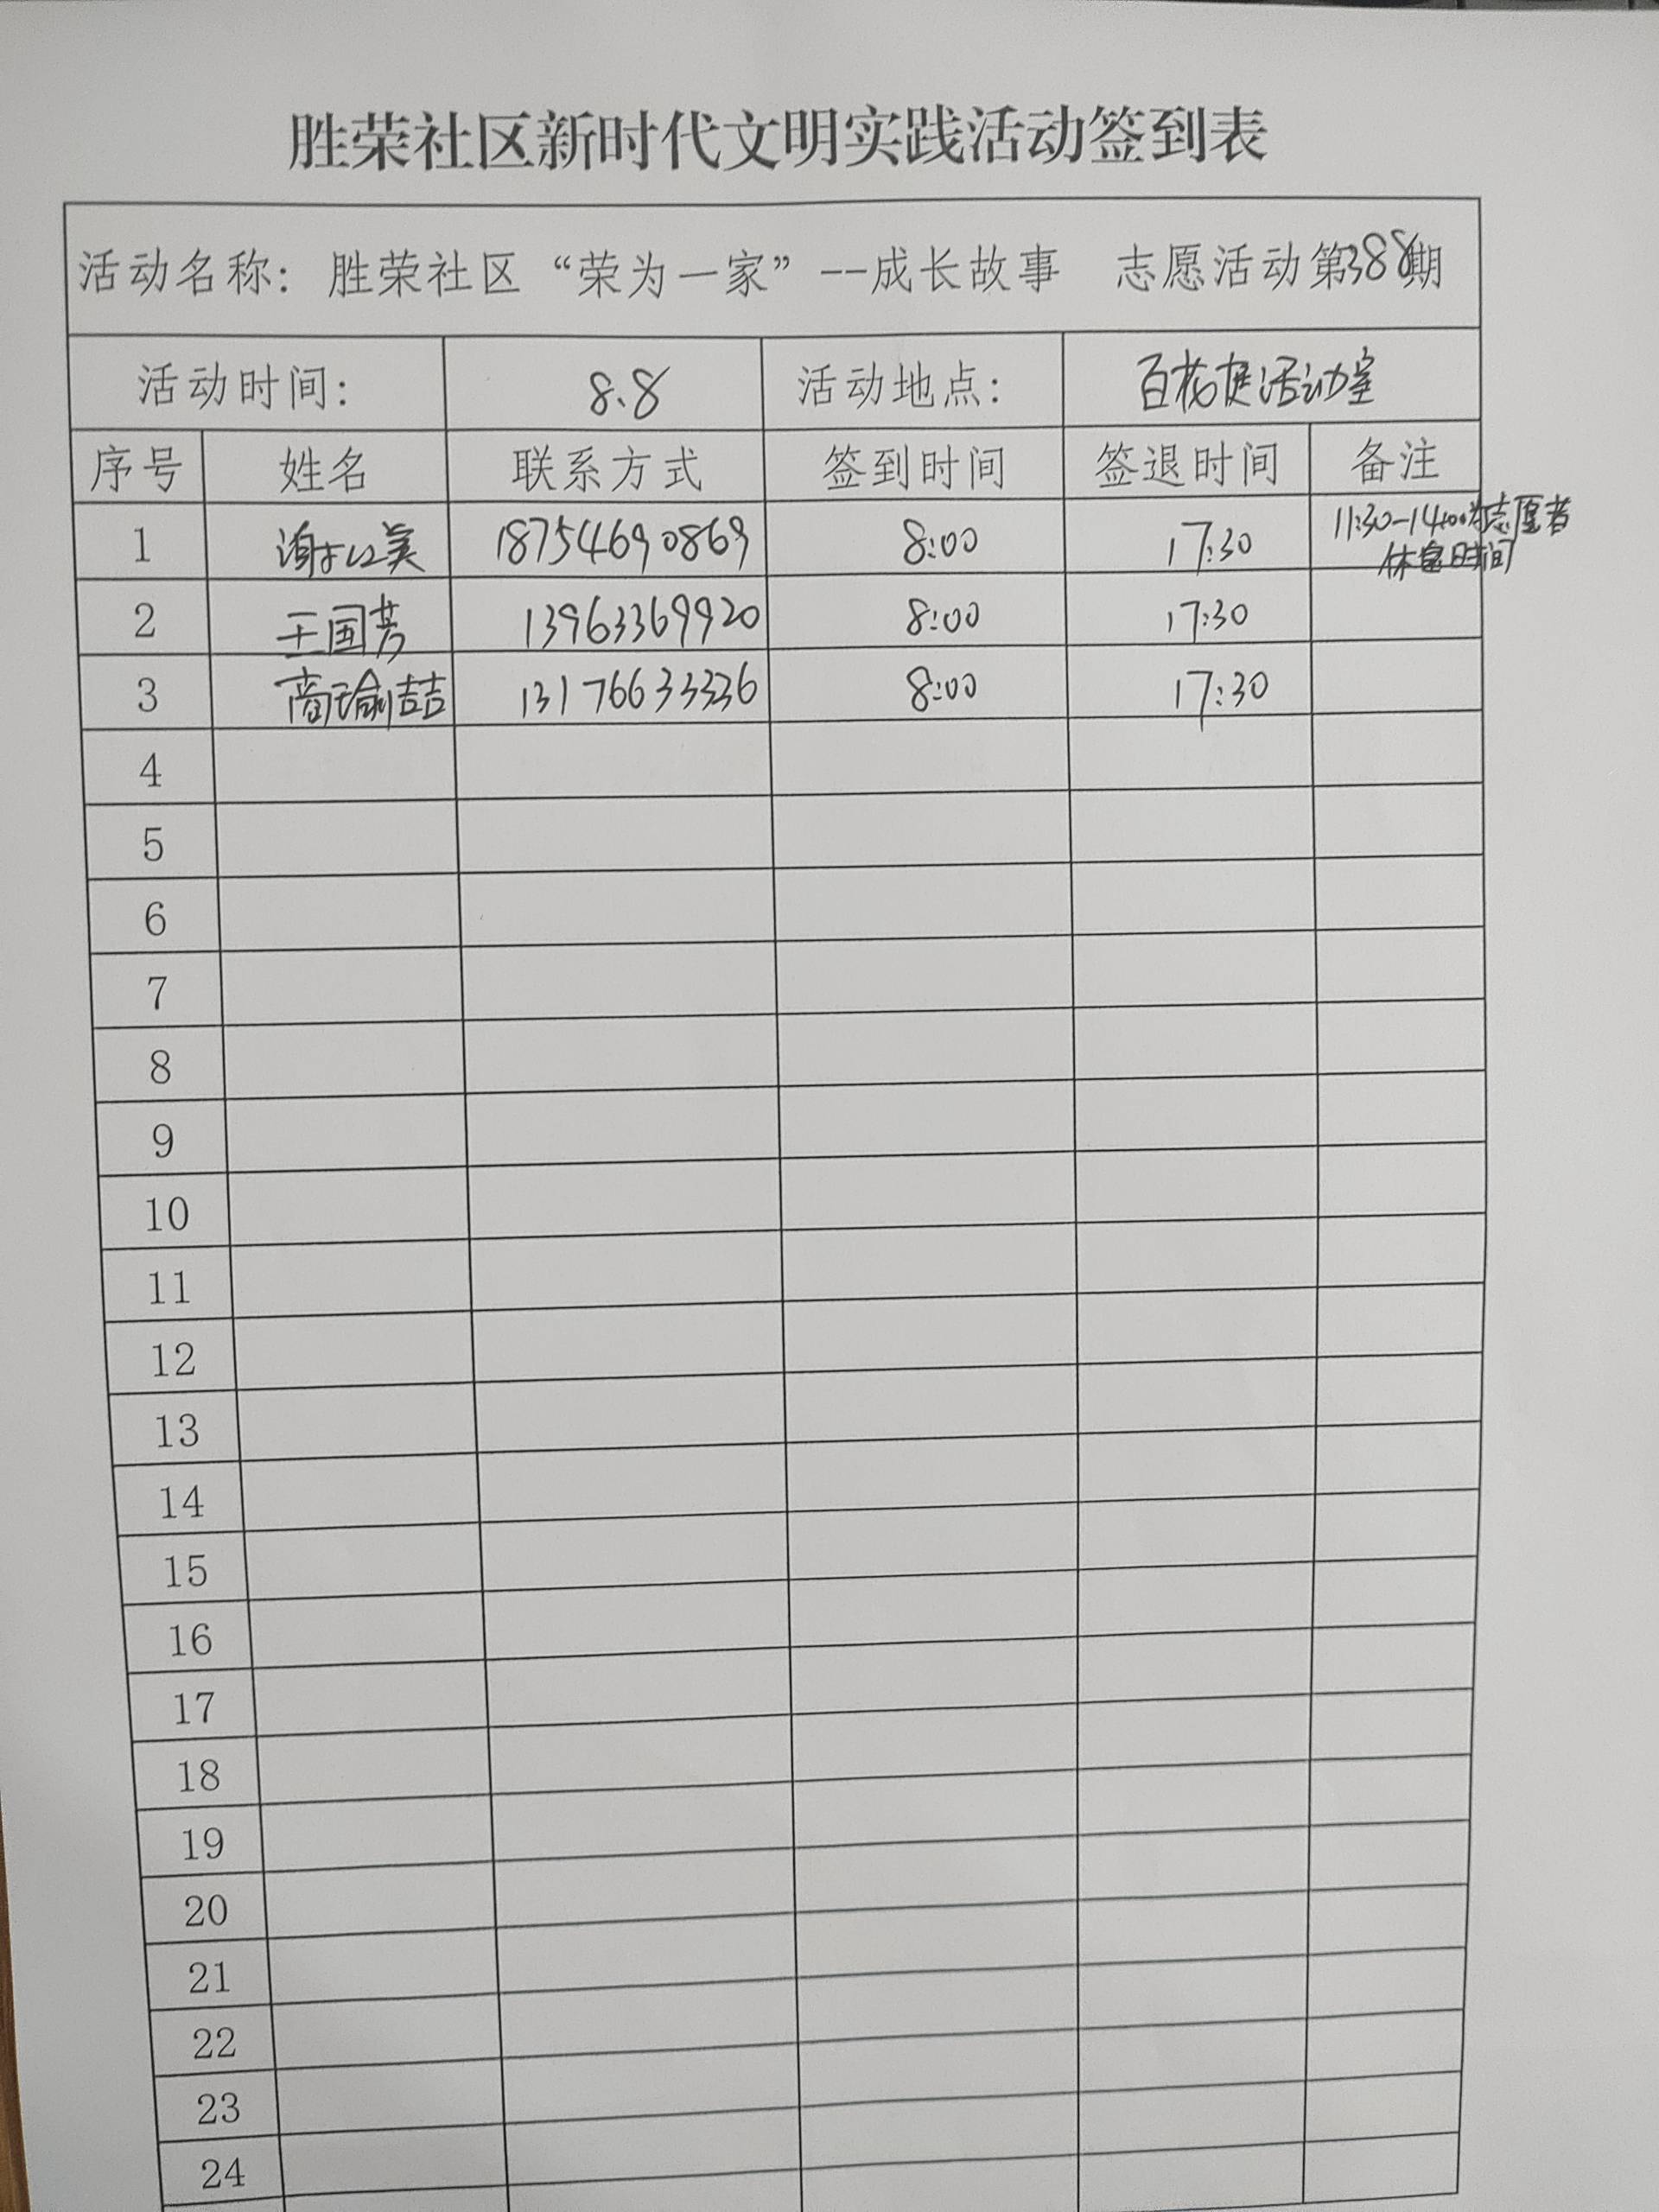 胜荣社区新时代文明实践活动签到表
活动名称：胜荣社区“荣为一家”--成长故事 志愿活动第388期
活动时间： 8.8 活动地点： 百花庭活动室
序号 姓名 联系方式 签到时间 签退时间 备注
1 谢红美 18754690869 8:00 17:30 11:30-14:00为志愿者
休息时间
2 王国芳 13963369920 8:00 17:30
3 商瑜喆 13176633336 8:00 17:30
4
5
6
7
8
9
10
11
12
13
14
15
16
17
18
19
20
21
22
23
24